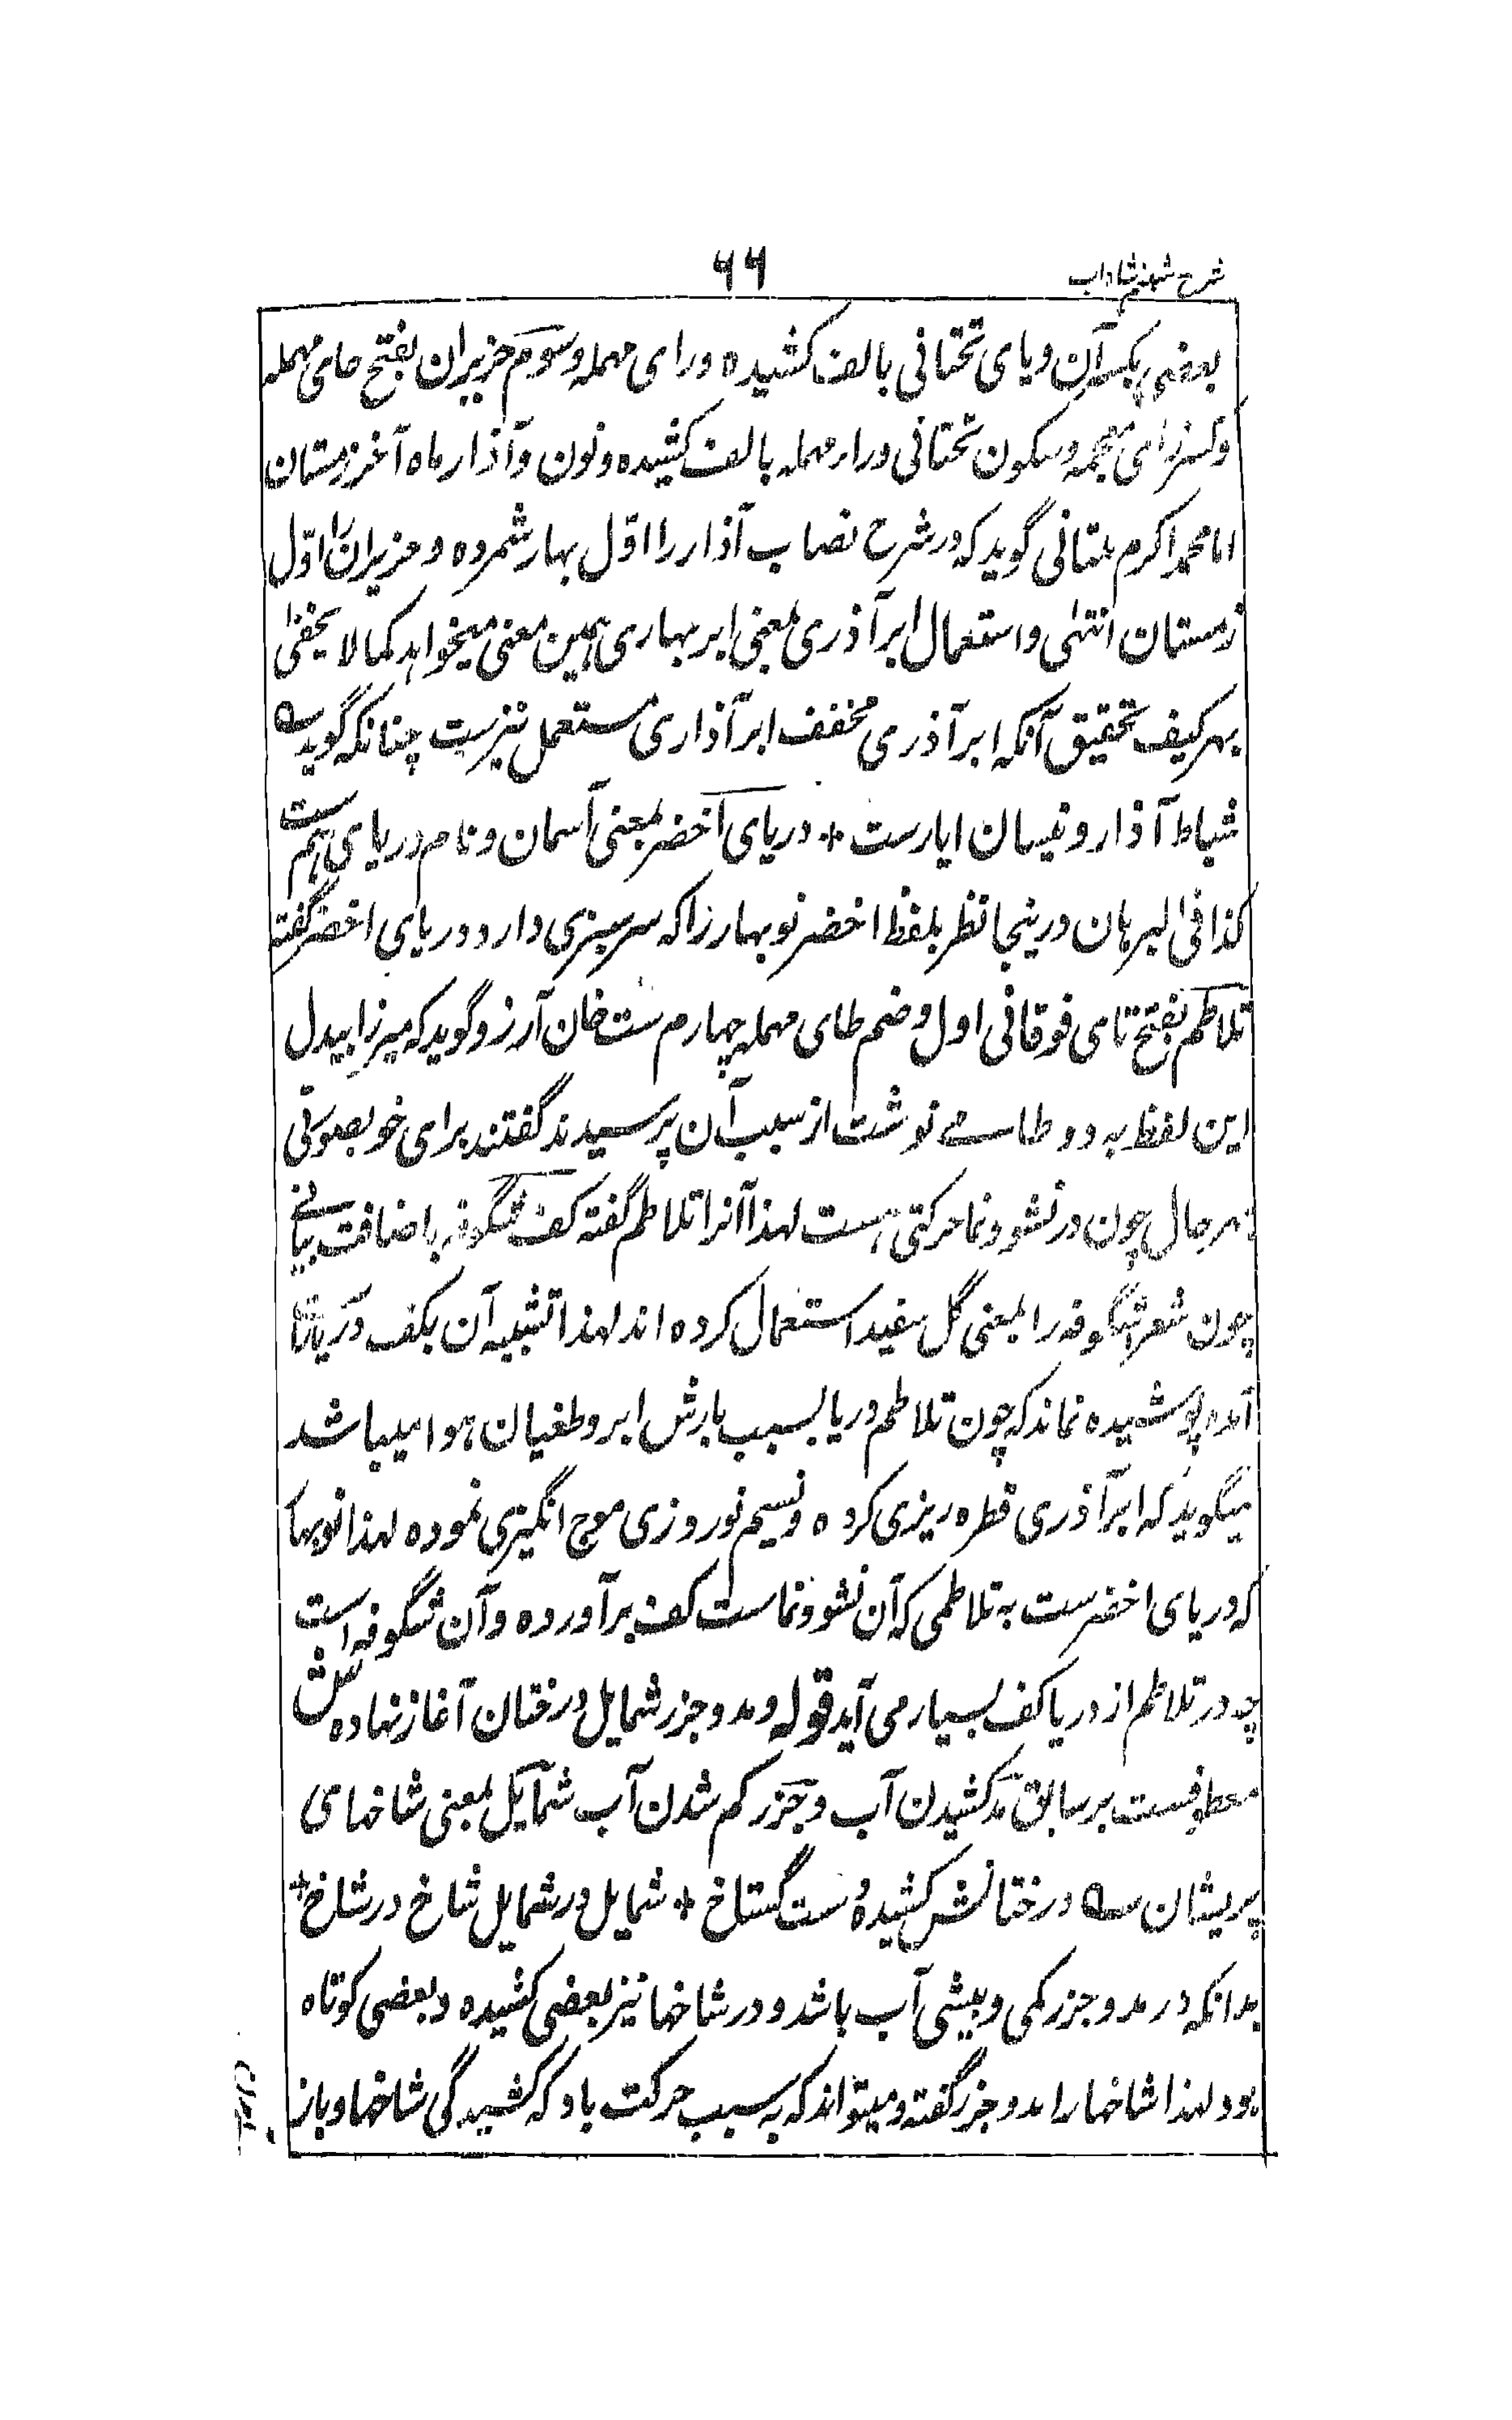 شرح شبنم شاداب
۶۶
بعضی بکسر آن و یای تحتانی بالف کشیده و رای مهمله و سوم حزیران بفتح حای مهمله
و کسر زای معجمه و سکون تحتانی و راء مهمله بالف کشیده و نون و آذار ماه آخر زمستان
اما محمد اکرم ملتانی گوید که در شرح نصاب آذار را اوّل بهار شمرده و حزیران را اوّل
زمستان انتهٰی و استعمال ابر آذری بمعنی ابر بهاری همین معنی میخواهد کما لا یخفیٰ
بهر کیف تحقیق آنکه ابر آذری مخفف ابر آذاری مستعمل نیزست چنانکه گوید ؎
شباط آذار و نیسان ایارست * دریای اخضر بمعنی آسمان و نام دریای هم ست
کذا فی البرهان و درینجا نظر بلفظ اخضر نوبهار را که سرسبزی دارد دریای اخضر گفته
تلاطم بفتح تای فوقانی اول و ضم طای مهمله چهارم ست خان آرزو گوید که میرزا بیدل
این لفظ به دو طا مے نوشت از سبب آن پرسیدند گفتند برای خوبصورتی
بهر حال چون در نشو و نما حرکتی هست لهذا آنرا تلاطم گفته کف شگوفه باضافت بیانے
چون شعرا شگوفه را بمعنی گل سفید استعمال کرده اند لهذا تشبیه آن بکف دریا
آمده پوشیده نماند که چون تلاطم دریا بسبب بارش ابر و طغیان هوا میباشد
میگوید که ابر آذری قطره ریزی کرده و نسیم نوروزی موج انگیزی نموده لهذا نوبها
که دریای اخضرست به تلاطمی که آن نشو و نماست کف برآورده و آن شگوفه است
چه در تلاطم از دریا کف بسیار می آید قوله و مد و جزر شمایل درختان آغاز نهاده ش
معطوفست بر سابق مد کشیدن آب و جزر کم شدن آب شمایل بمعنی شاخهای
پریشان ؎ درختانش کشیده ست گستاخ * شمایل در شمایل شاخ در شاخ *
بدانکه در مد و جزر کمی و بیشی آب باشد و در شاخها نیز بعضی کشیده و بعضی کوتاه
بود لهذا شاخها را مد و جزر گفته و میتواند که به سبب حرکت باد که کشیدگی شاخها و باز